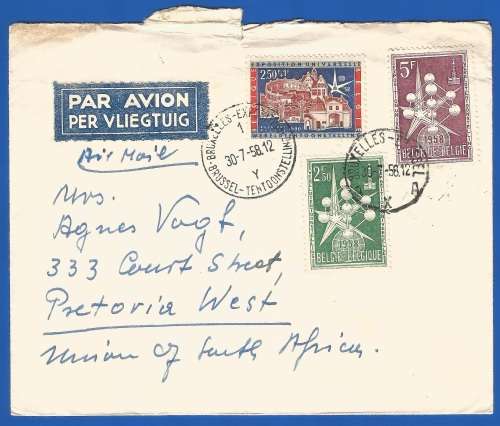 PAR AVION
PER VLIEGTUIG
Air Mail
EXPOSITION UNIVERSELLE
2.50+1F
BRUXELLES-EX
1
30-7-58.12
Y
BRUSSEL-TENTOONSTELLING
5F
1958
BELGIE-BELGIQUE
30-7-58.12
X
2.50
1958
BELGIE-BELGIQUE
Mrs.
Agnes Vogt,
333 Court Street,
Pretoria West
Union of South Africa.